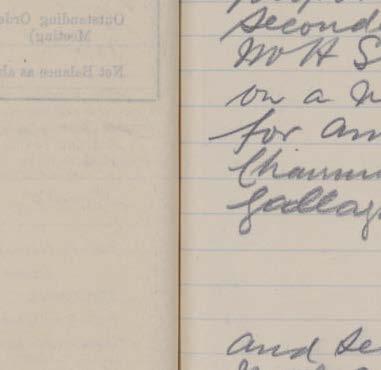 Outstanding Orde
Meeting)
Net Balance as a
seconde
on a
for am
Chairm
Gallag
and se